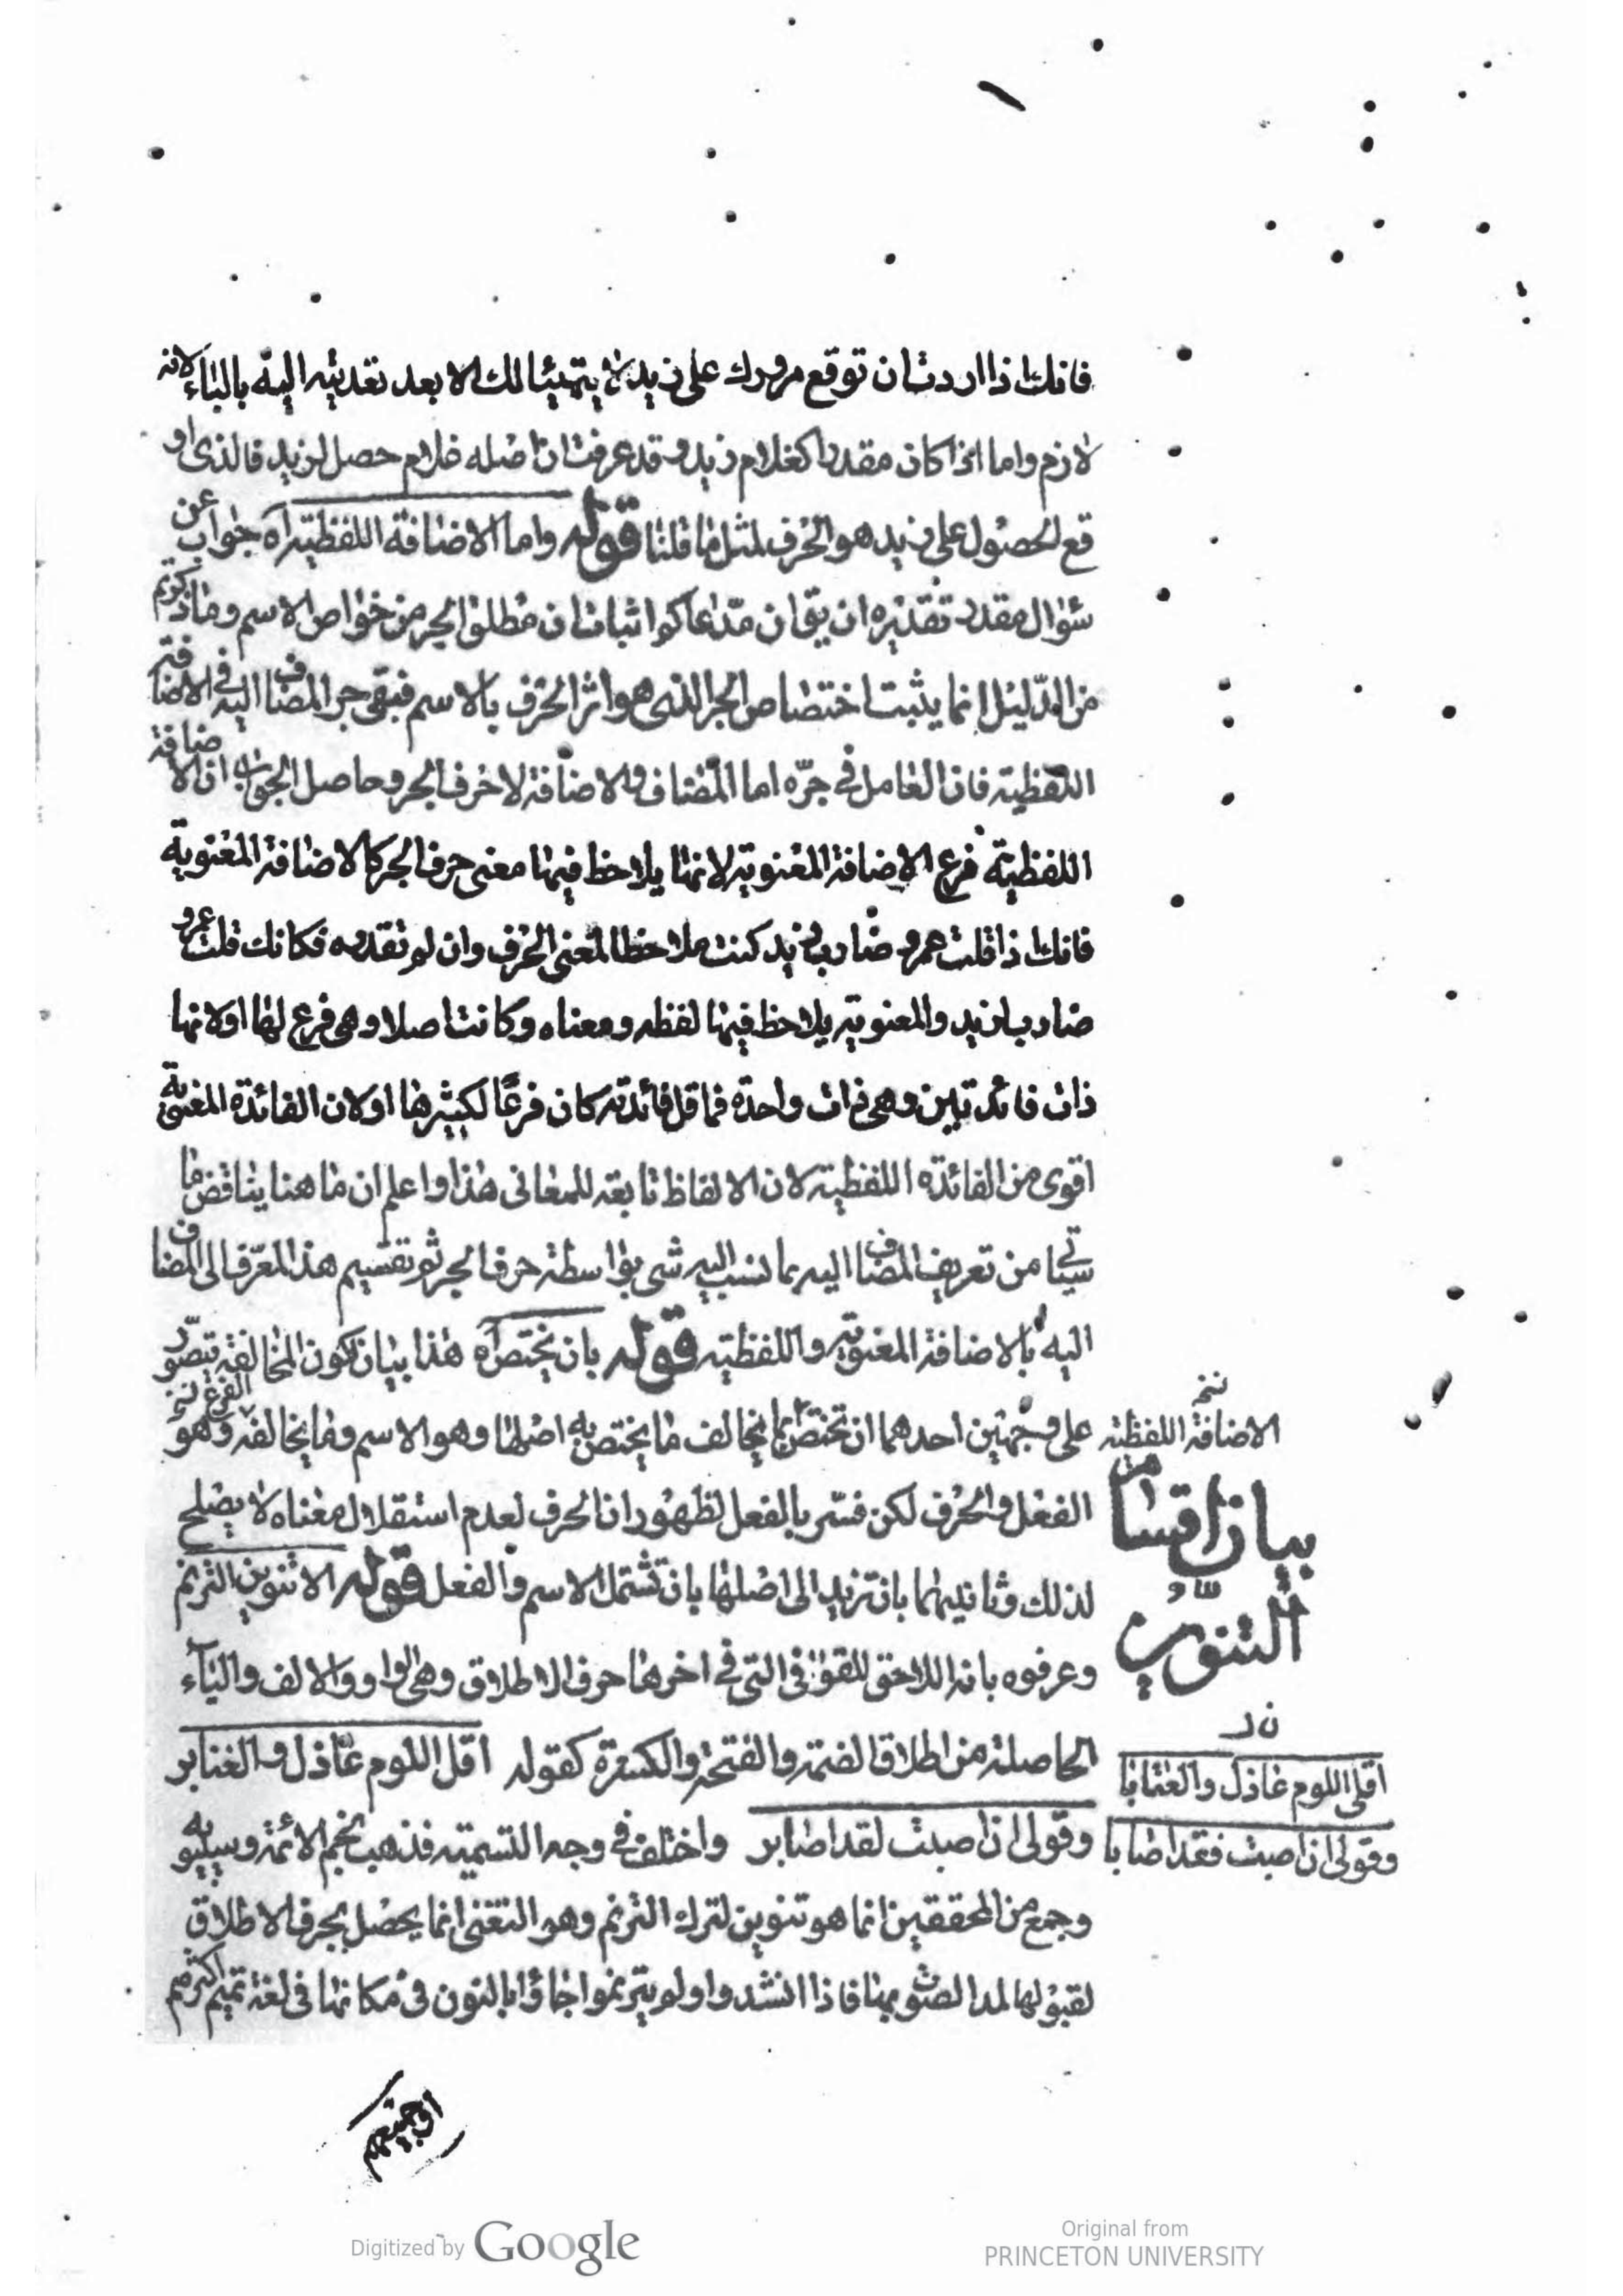 فانك اذا اردت ان توقع مرورك على زيد لا يتهيئا لك الا بعد تعديته اليه بالباء لانه
لازم واما اذا كان مقدرا كغلام زيد وقد عرفت ان اصله غلام حصل لزيد فالذى او
قع الحصول على زيد هو الحرف لمثل ما قلنا قوله واما الاضافة اللفظية آه جواب عن
سؤال مقدر تقديره ان يق ان مدعاكو اثبات ان مطلق الجر من خواص الاسم وما ذكرتم
من الدليل انما يثبت اختصاص الجر الذى هو اثر الحرف بالاسم فبقى جر المضاف اليه فى الاضافة
اللفظية فان العامل فى جره اما المضاف او الاضافة لا حرف الجر وحاصل الجواب ان الاضافة
اللفظية فرع الاضافة المعنوية لانها يلاحظ فيها معنى حرف الجر كالاضافة المعنوية
فانك اذا قلت عمرو ضارب زيد كنت ملاحظا لمعنى الحرف وان لم تقدره فكانك قلت عمرو
ضارب لزيد والمعنوية يلاحظ فيها لفظه ومعناه وكانت اصلا وهى فرع لها او لانها
ذات فائدتين وهى ذات واحدة فما قل فائدته كان فرعًا لكثيرها او لان الفائدة المعنوية
اقوى من الفائدة اللفظية لان الالفاظ تابعة للمعانى هذا واعلم ان ما هنا يناقض ما
سياتى من تعريف المضاف اليه بما نسب اليه شى بواسطة حرف الجر ثم تقسيم هذا المعرف الى المضاف
اليه بالاضافة المعنوية واللفظية قوله بان يختص آه هذا بيان لكون المخالفة يتصور
على وجهين احدهما ان تختص بما يخالف ما يختص به اصلها وهو الاسم وما يخالفه وهو
الفرع نخ
الاضافة اللفظية نخ
الفعل والحرف لكن فسّر بالفعل لظهور ان الحرف لعدم استقلال معناه لا يصلح
بيان اقسام من
التنوين
لذلك وثانيهما بان تزيد الى اصلها بان تشتمل الاسم والفعل قوله الا تنوين الترنم
وعرفوه بانه اللاحق للقوافى التى فى اخرها حرف الاطلاق وهى الواو والالف والياء
الحاصلة من اطلاق الضمة والفتحة والكسرة كقوله اقل اللوم عاذل والعتابر
اقلى اللوم عاذل والعتابا
وقولى ان اصبت لقد اصابر واختلف فى وجه التسمية فذهب نجم الائمة وسيبويه
وقولى ان اصبت فقد اصابا
وجمع من المحققين انما هو تنوين لترك الترنم وهو التغنى انما يحصل بحرف الاطلاق
لقبولها لمد الصوت بها فاذا انشدوا ولم يترنموا جاؤا بالنون فى مكانها فى لغة تميم اكثرهم
او جميعهم
Digitized by Google
Original from
PRINCETON UNIVERSITY